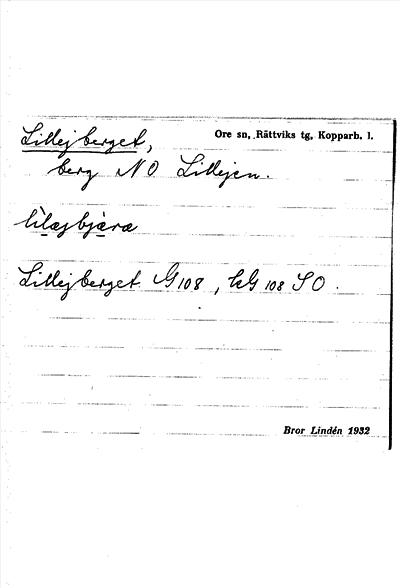 Lillejberget,
Ore sn, Rättviks tg, Kopparb. l.
berg NO Lillejen.
lìlæjbjæra
Lillejberget G 108, hG 108 SO.
Bror Lindén 1932